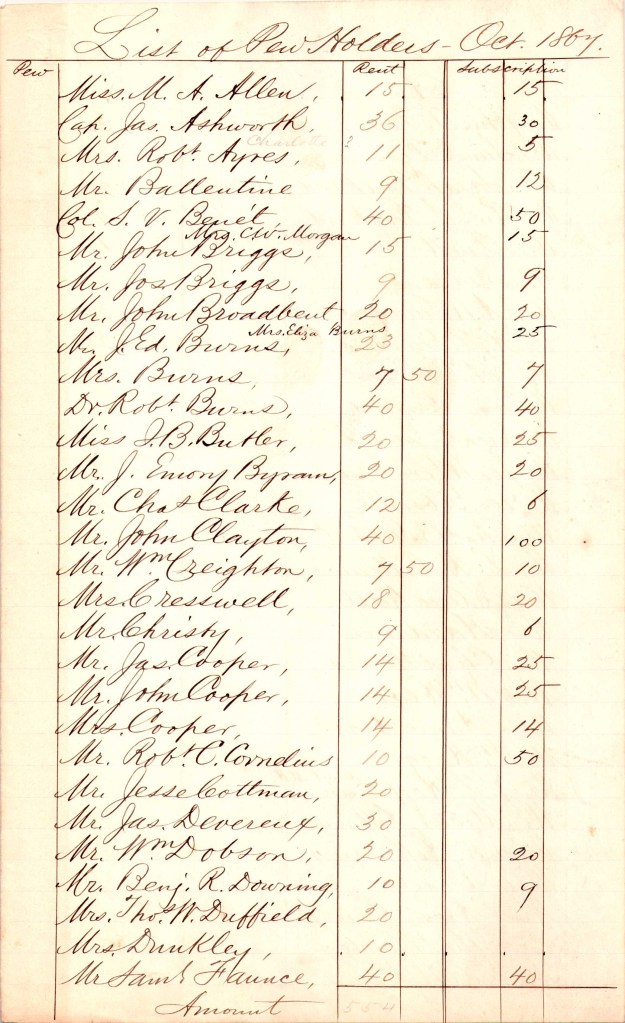 List of Pew Holders - Oct. 1867.
Pew Rent Subscription
Miss. M. A. Allen, 15 15
Cap. Jas. Ashworth, 36 30
Charlotte
Mrs. Robt. Ayres, 11 5
Mr. Ballentine 9 12
Col. S. V. Benét, 40 50
Mrs. CW. Morgan
Mr. John Briggs, 15 15
Mr. Jos Briggs, 9 9
Mr. John Broadbent 20 20
Mrs. Eliza Burns
Mr. J. Ed. Burns, 23 25
Mrs. Burns, 7 50 7
Dr. Robt. Burns, 40 40
Miss J. B. Butler, 20 25
Mr. J. Emory Byram, 20 20
Mr. Chas Clarke, 12 6
Mr. John Clayton, 40 100
Mr. Wm Creighton, 7 50 10
Mrs. Cresswell, 18 20
Mr. Christy, 9 6
Mr. Jas. Cooper, 14 25
Mr. John Cooper, 14 25
Mrs. Cooper, 14 14
Mr. Robt. C. Cornelius 10 50
Mr. Jesse Cottman, 20
Mr. Jas. Devereux, 30
Mr. Wm Dobson, 20 20
Mr. Benj. R. Downing, 10 9
Mrs. Thos. W. Duffield, 20
Mrs. Dunkley, 10
Mr Saml Faunce, 40 40
Amount 554